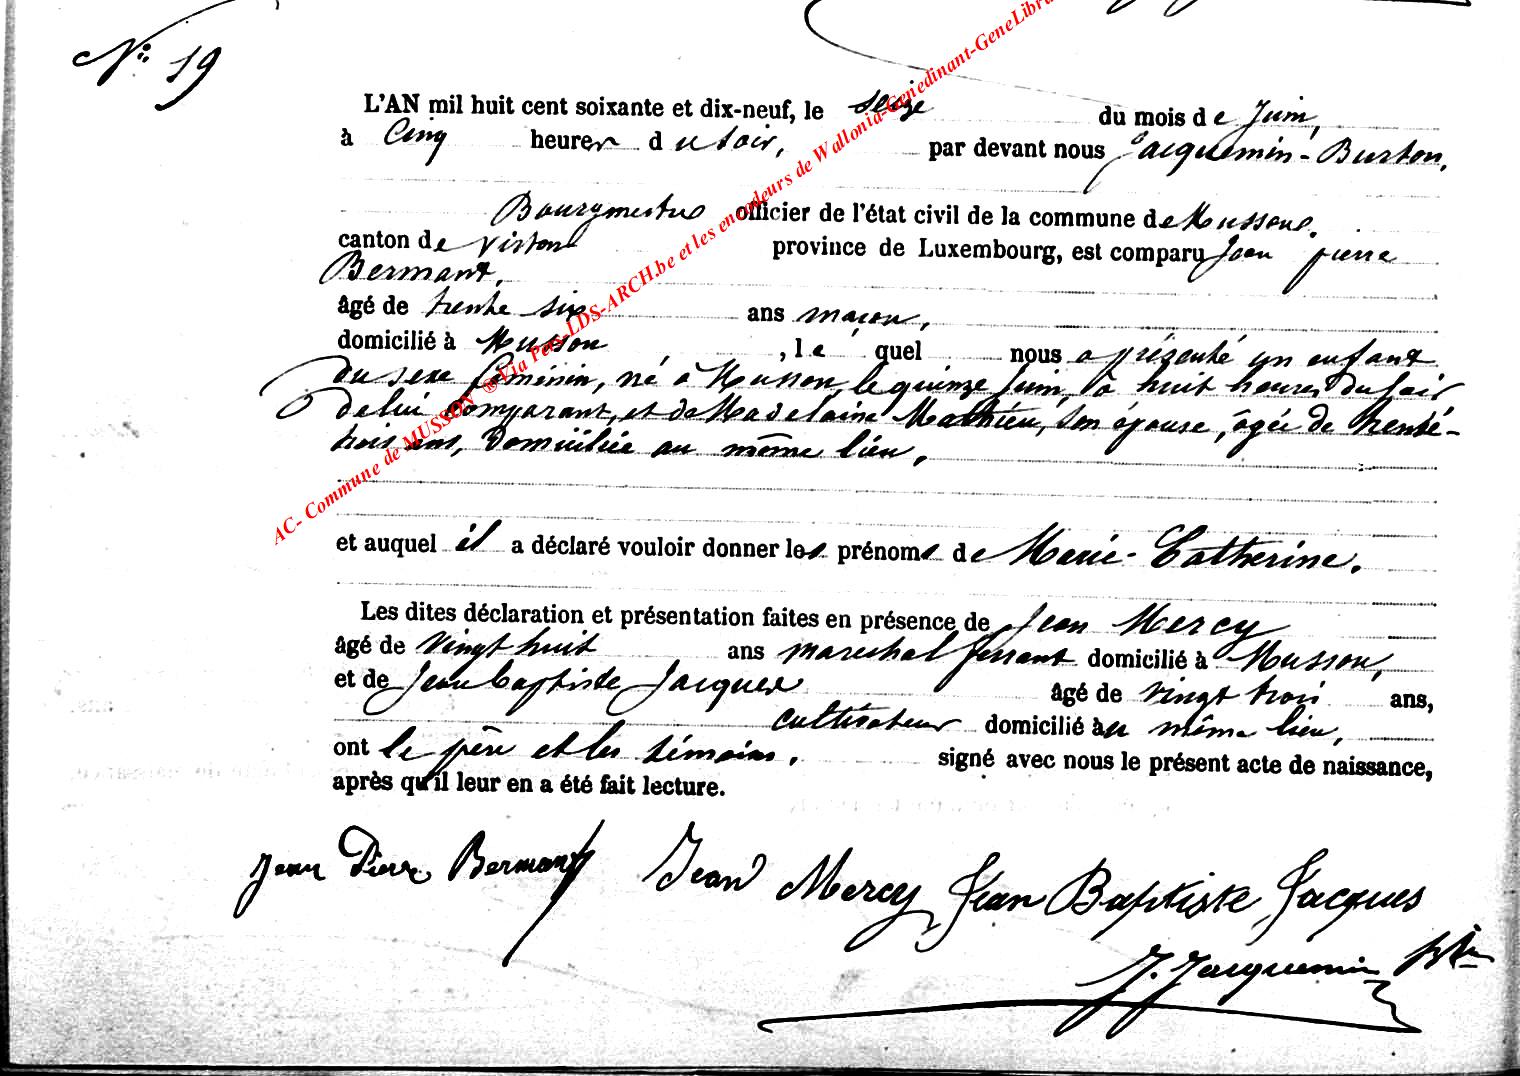 N° 19
L'AN mil huit cent soixante et dix-neuf, le seize du mois de Juin,
à Cinq heures du soir, par devant nous Jacquemin-Burton,
Bourgmestre officier de l'état civil de la commune de Musson.
canton de Virton province de Luxembourg, est comparu Jean pierre
Bermant,
âgé de trente six ans maçon,
domicilié à Musson, le quel nous a présenté un enfant
du sexe féminin, né à Musson, le quinze Juin, à huit heures du soir
de lui comparant, et de Madelaine Mathieu, son épouse, âgée de trente-
trois ans, domiciliée au même lieu.
et auquel il a déclaré vouloir donner les prénoms de Marie-Catherine.
Les dites déclaration et présentation faites en présence de Jean Mercy
âgé de vingt huit ans marechal ferrant domicilié à Musson,
et de Jean baptiste Jacques âgé de vingt trois ans,
cultivateur domicilié au même lieu,
ont le père et les témoins. signé avec nous le présent acte de naissance,
après qu'il leur en a été fait lecture.
Jean Pierre Bermant Jean Mercy Jean Baptiste Jacques
J. Jacquemin
AC- Commune de MUSSON ®Via Pers-LDS-ARCH.be et les encodeurs de Wallonia-Genedinant-GeneLibra